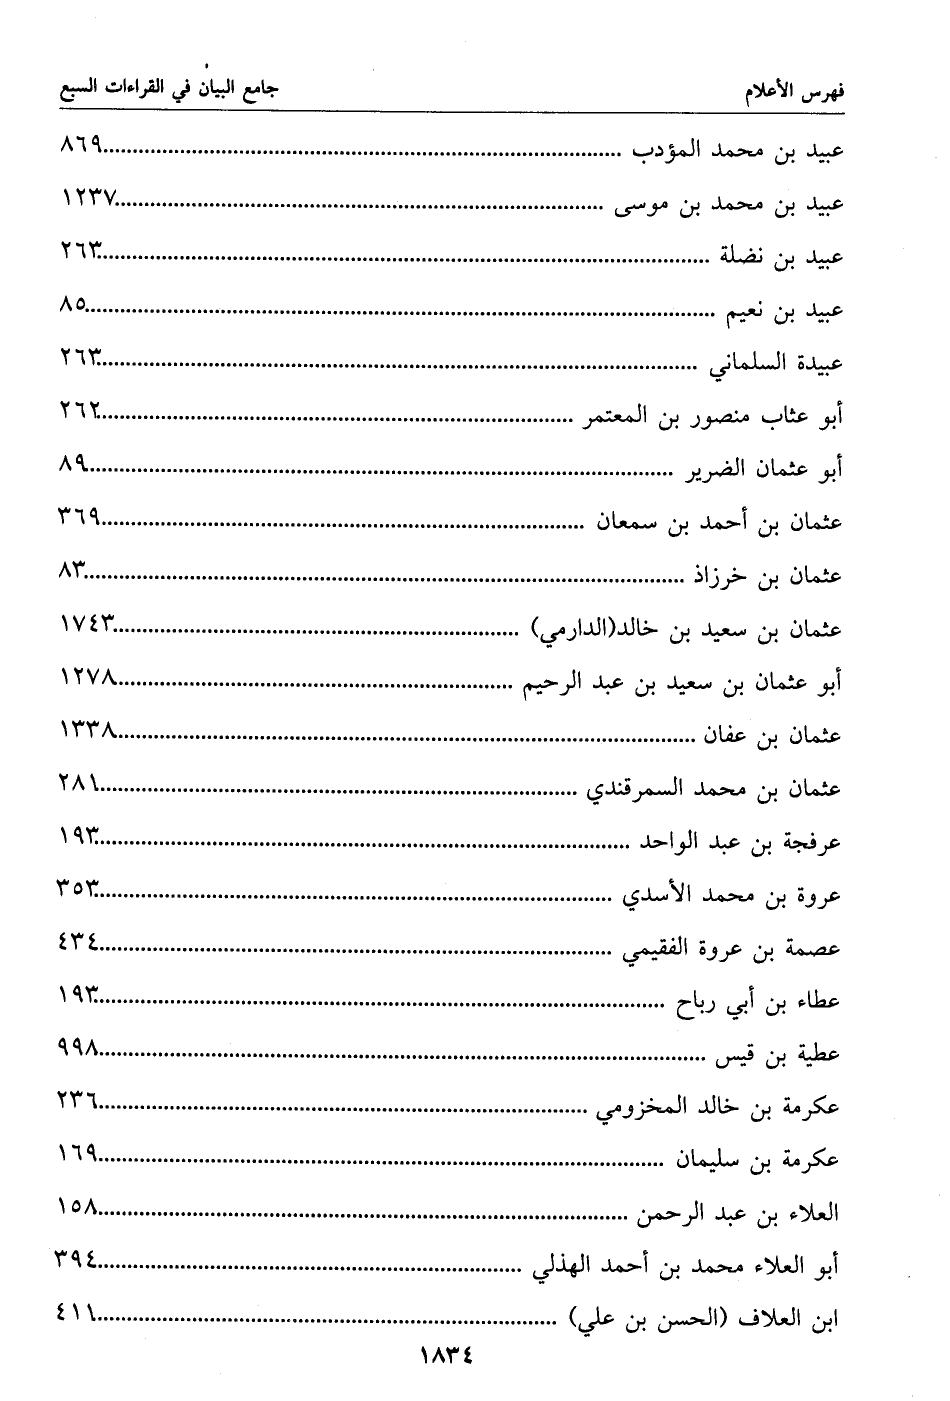 فهرس الأعلام جامع البيان في القراءات السبع
عبيد بن محمد المؤدب ..................... ٨٦٩
عبيد بن محمد بن موسى ..................... ١٢٣٧
عبيد بن نضلة ..................... ٢٦٣
عبيد بن نعيم ..................... ٨٥
عبيدة السلماني ..................... ٢٦٣
أبو عثاب منصور بن المعتمر ..................... ٢٦٢
أبو عثمان الضرير ..................... ٨٩
عثمان بن أحمد بن سمعان ..................... ٣٦٩
عثمان بن خرزاذ ..................... ٨٣
عثمان بن سعيد بن خالد(الدارمي) ..................... ١٧٤٣
أبو عثمان بن سعيد بن عبد الرحيم ..................... ١٢٧٨
عثمان بن عفان ..................... ١٣٣٨
عثمان بن محمد السمرقندي ..................... ٢٨١
عرفجة بن عبد الواحد ..................... ١٩٣
عروة بن محمد الأسدي ..................... ٣٥٣
عصمة بن عروة الفقيمي ..................... ٤٣٤
عطاء بن أبي رباح ..................... ١٩٣
عطية بن قيس ..................... ٩٩٨
عكرمة بن خالد المخزومي ..................... ٢٣٦
عكرمة بن سليمان ..................... ١٦٩
العلاء بن عبد الرحمن ..................... ١٥٨
أبو العلاء محمد بن أحمد الهذلي ..................... ٣٩٤
ابن العلاف (الحسن بن علي) ..................... ٤١١
١٨٣٤